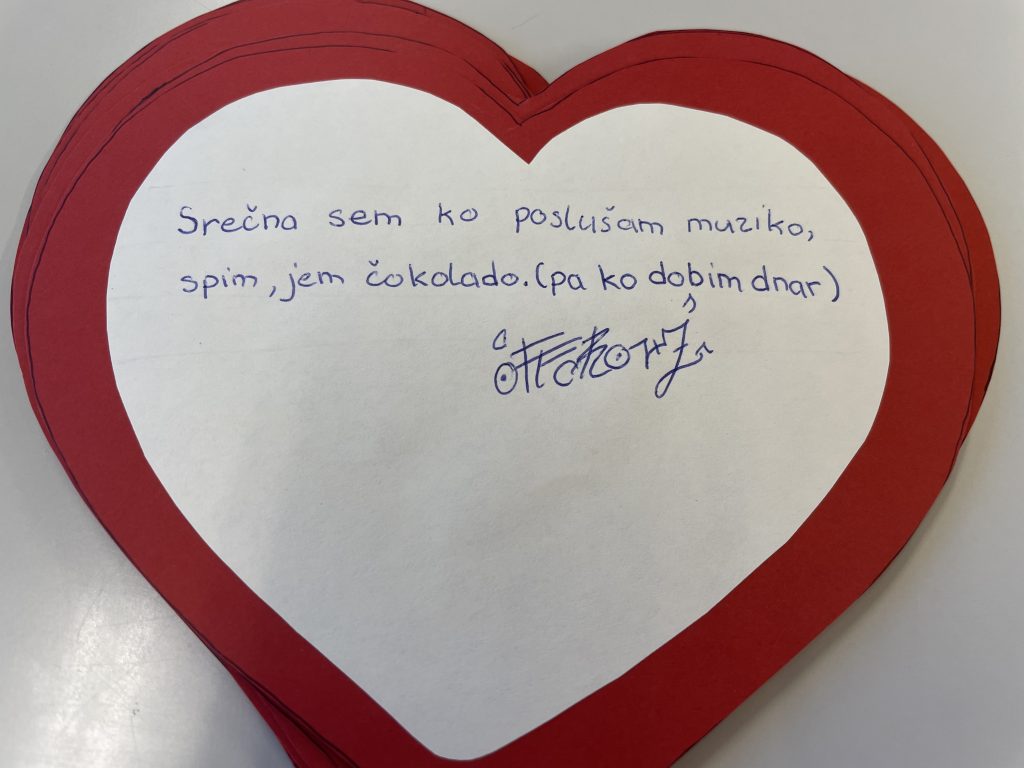 Srečna sem ko poslušam muziko,
spim, jem čokolado. (pa ko dobim dnar)